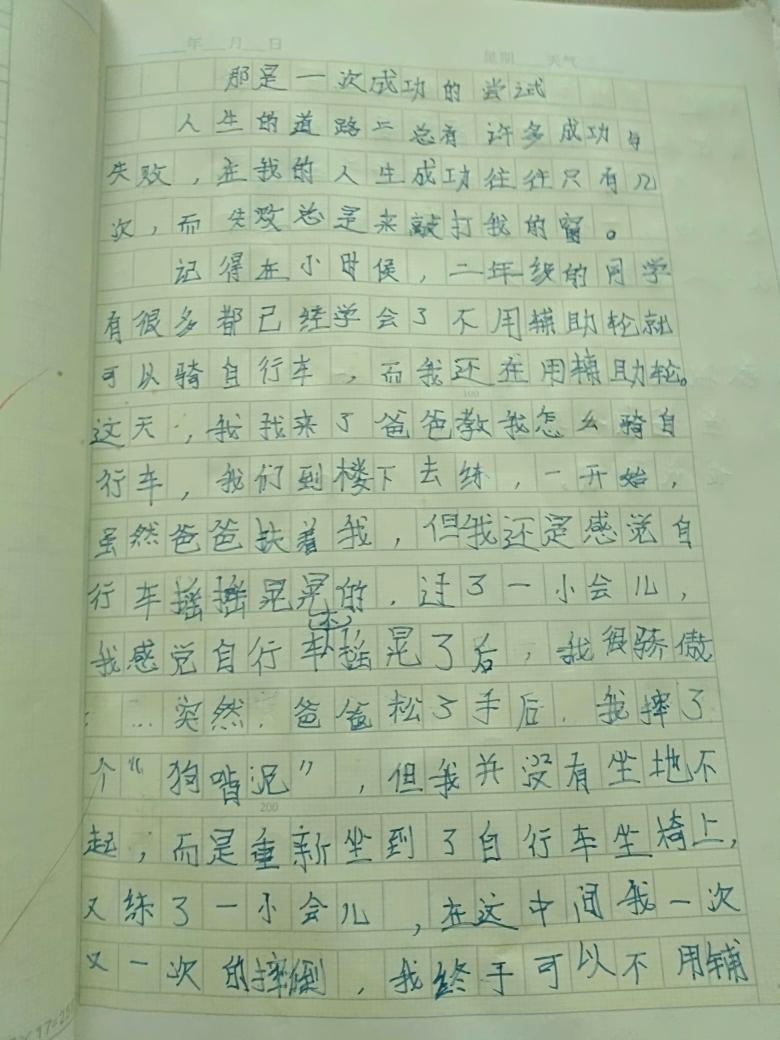 年 月 日 星期 天气
那是一次成功的尝试
人生的道路上总有许多成功与
失败，在我的人生成功往往只有几
次，而失败总是来敲打我的窗。
记得在小时候，二年级的同学
有很多都已经学会了不用辅助轮就
可以骑自行车，而我还在用辅助轮。
100
这天，我找来了爸爸教我怎么骑自
行车，我们到楼下去练，一开始，
虽然爸爸扶着我，但我还是感觉自
行车摇摇晃晃的，过了一小会儿，
我感觉自行车（不）摇晃了后，我很骄傲
……突然，爸爸松了手后，我摔了
个“狗啃泥”，但我并没有坐地不
200
起，而是重新坐到了自行车坐椅上，
又练了一小会儿，在这中间我一次
又一次的摔倒，我终于可以不用辅